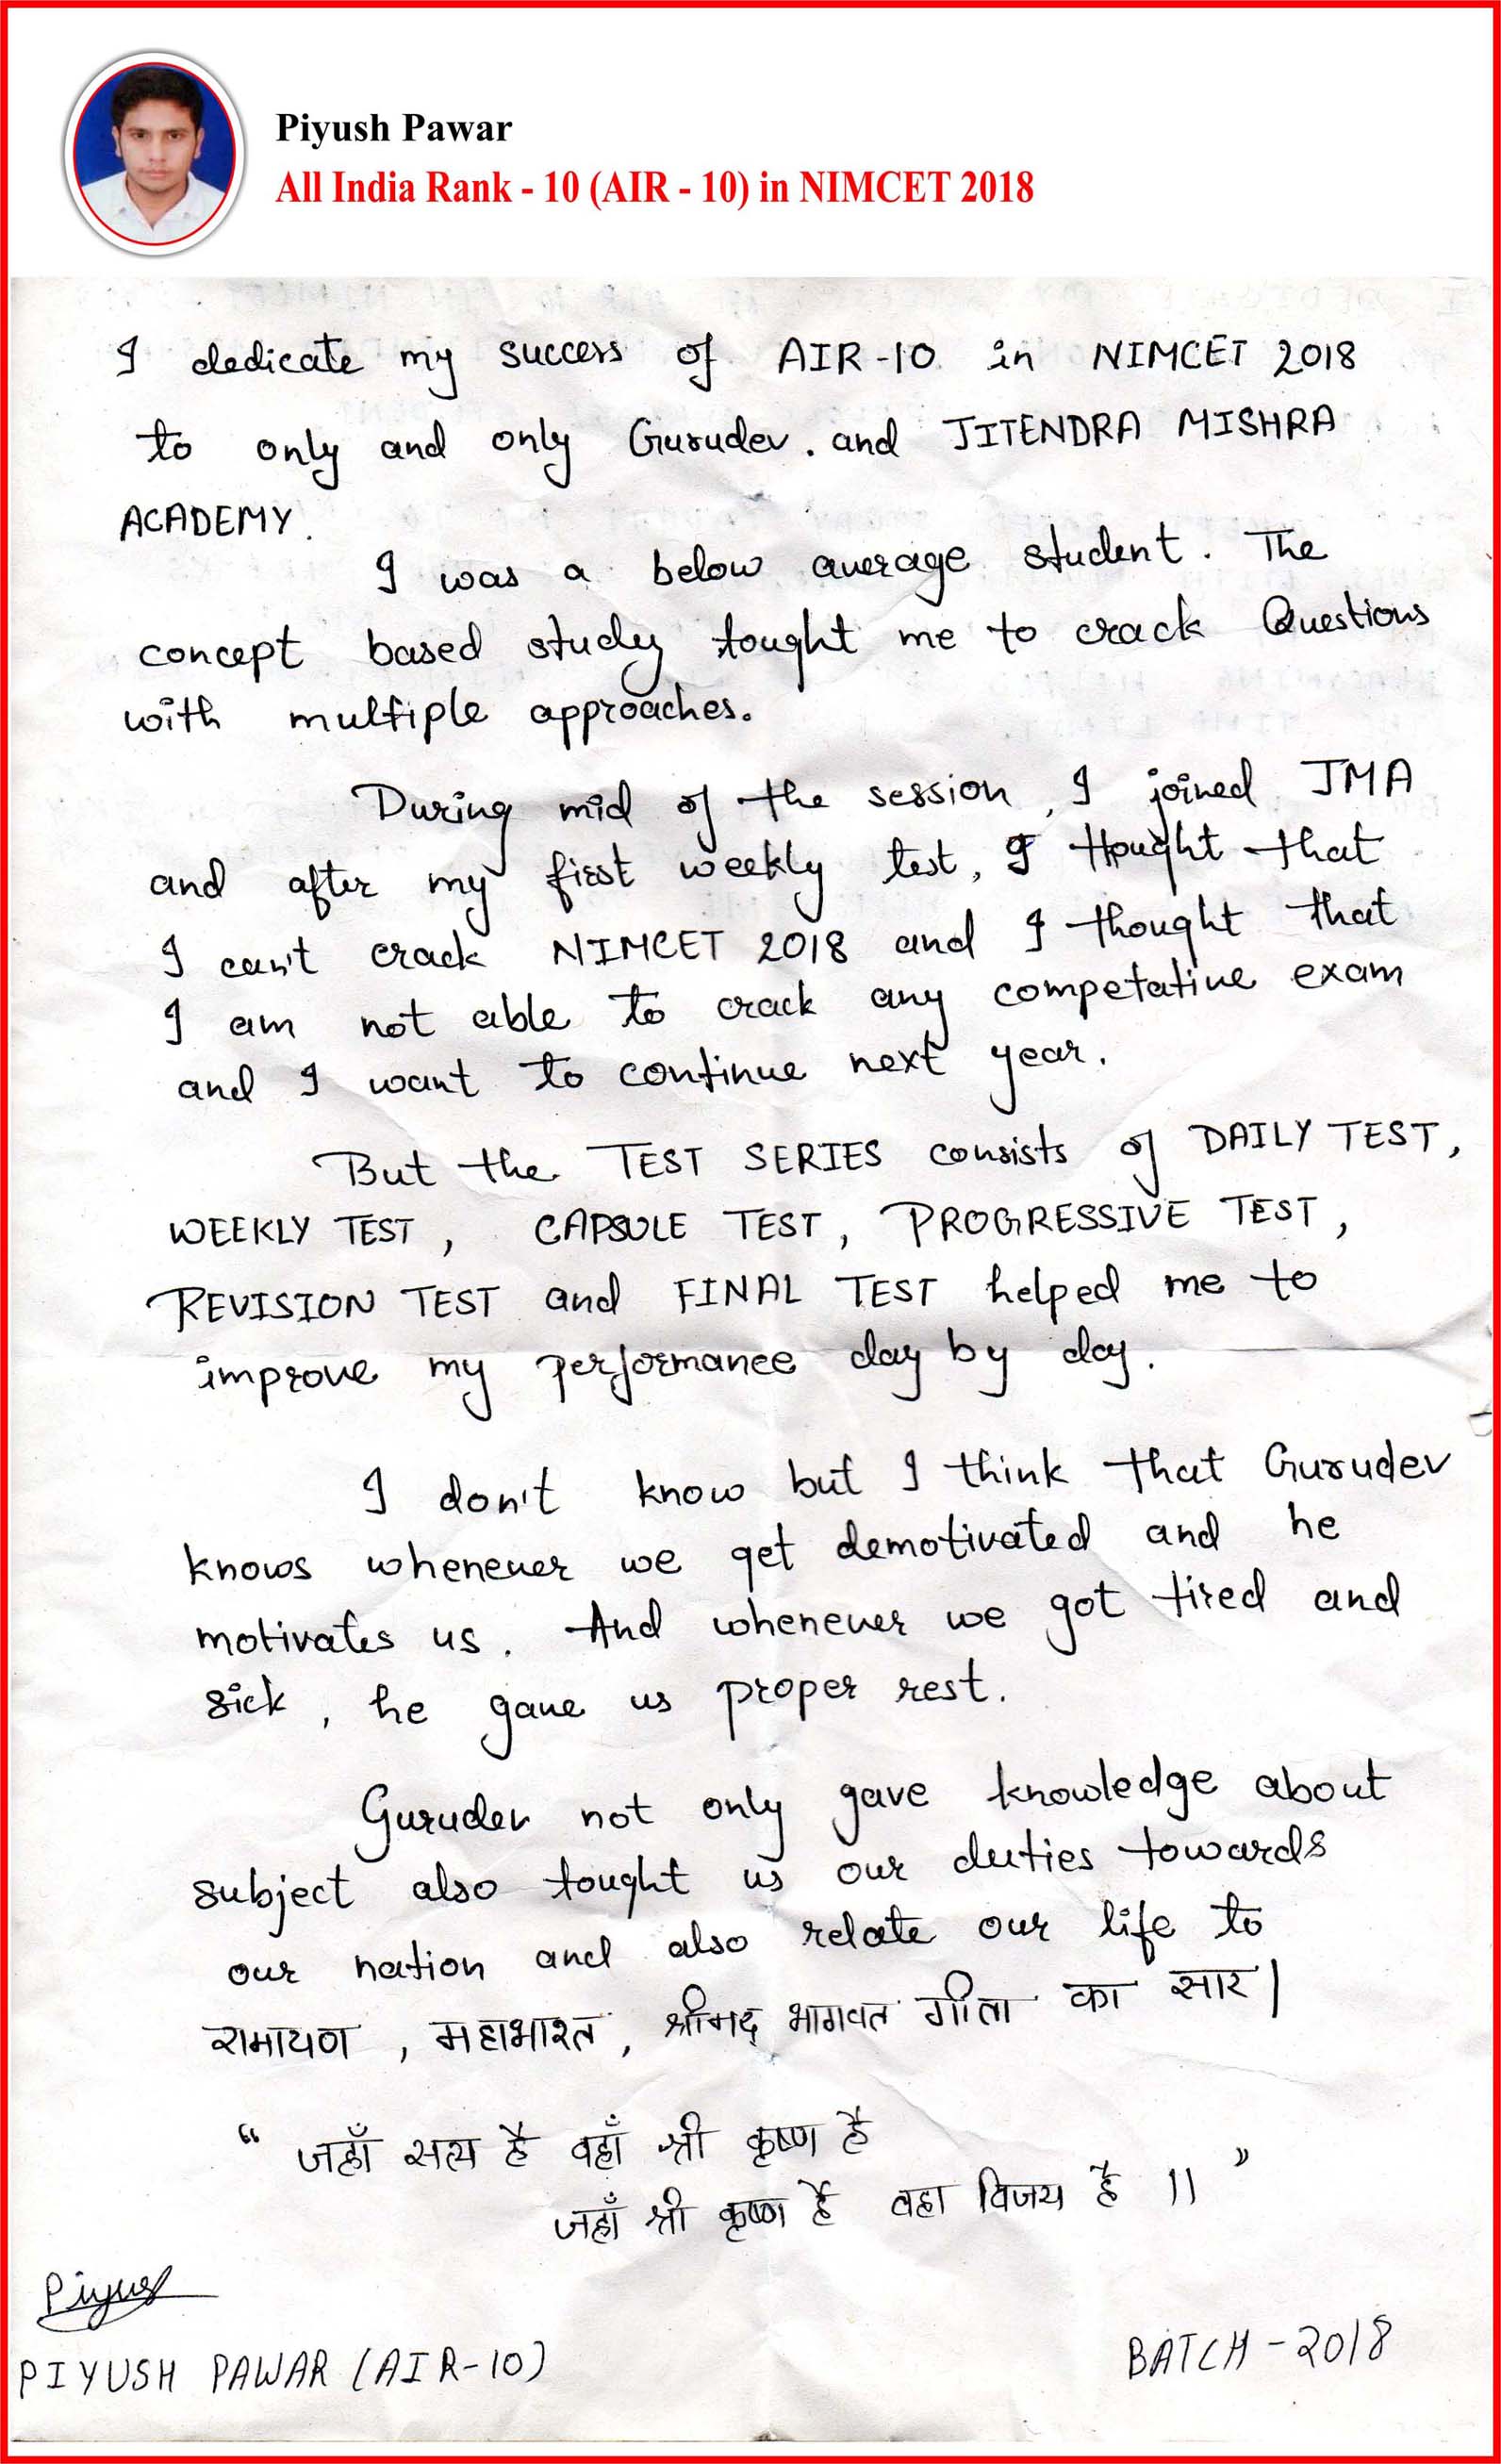 Piyush Pawar
All India Rank - 10 (AIR - 10) in NIMCET 2018
I dedicate my success of AIR-10 in NIMCET 2018
to only and only Gurudev. and JITENDRA MISHRA
ACADEMY.
I was a below average student. The
concept based study tought me to crack Questions
with multiple approaches.
During mid of the session, I joined JMA
and after my first weekly test, I thought that
I can't crack NIMCET 2018 and I thought that
I am not able to crack any competative exam
and I want to continue next year.
But the TEST SERIES consists of DAILY TEST,
WEEKLY TEST, CAPSULE TEST, PROGRESSIVE TEST,
REVISION TEST and FINAL TEST helped me to
improve my performance day by day.
I don't know but I think that Gurudev
knows whenever we get demotivated and he
motivates us. And whenever we got tired and
sick, he gave us proper rest.
Gurudev not only gave knowledge about
subject also tought us our duties towards
our nation and also relate our life to
रामायण, महाभारत, श्रीमद् भागवत गीता का सार|
“ जहाँ सत्य है वहाँ श्री कृष्ण है
जहाँ श्री कृष्ण है वहा विजय है ।। ”
Piyush
PIYUSH PAWAR (AIR-10)
BATCH - 2018